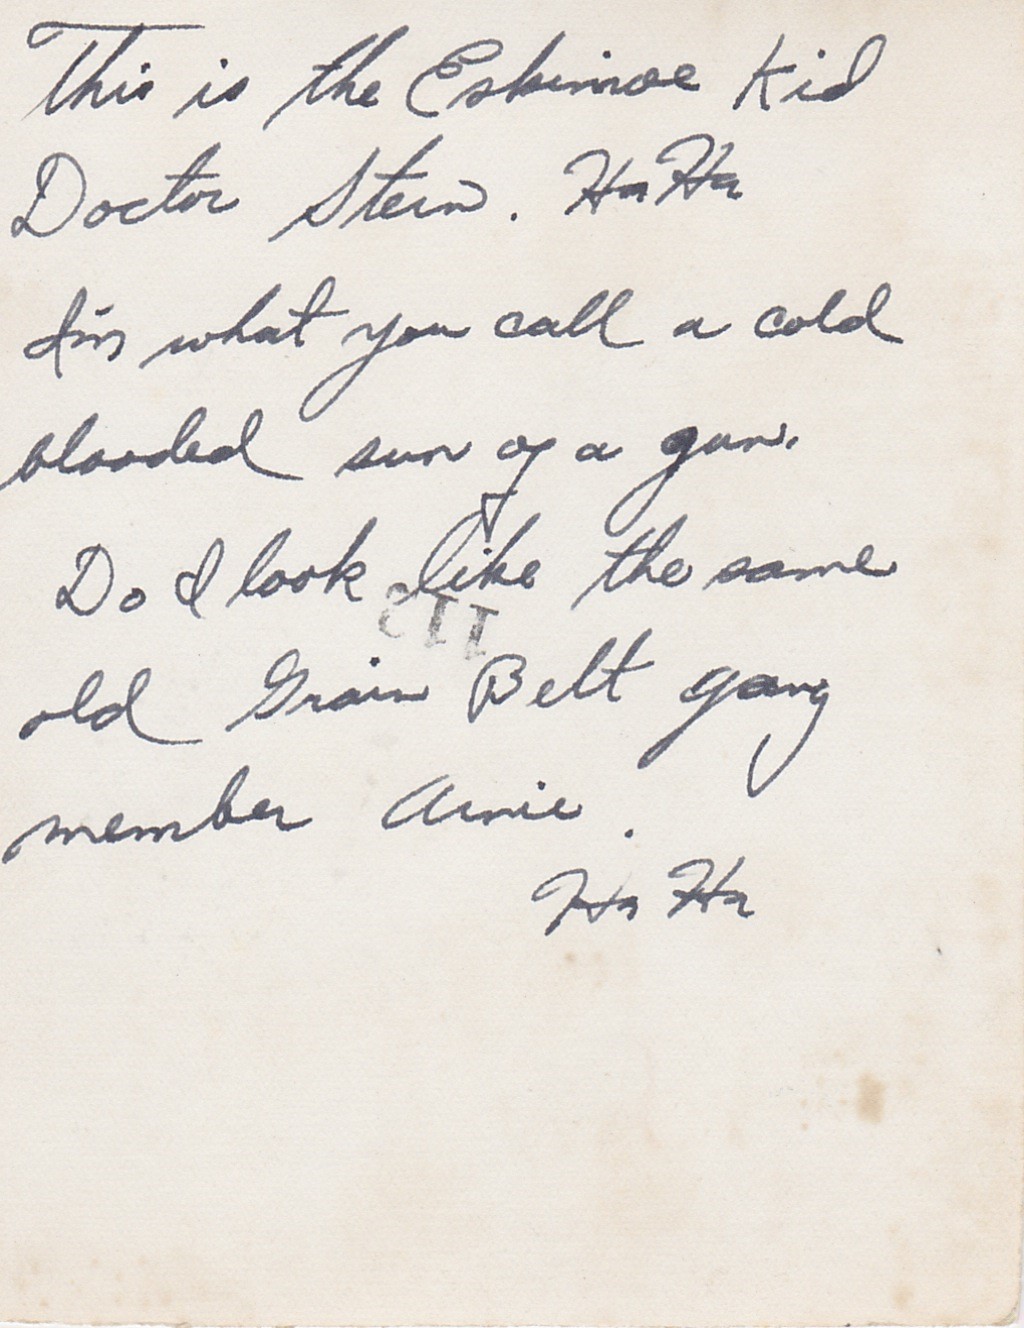 This is the Eskimoe Kid
Doctor Stein. Ha Ha
I'm what you call a cold
blooded sun of a gun.
Do I look like the same
113
old Grain Belt gang
member Arnie.
Ha Ha